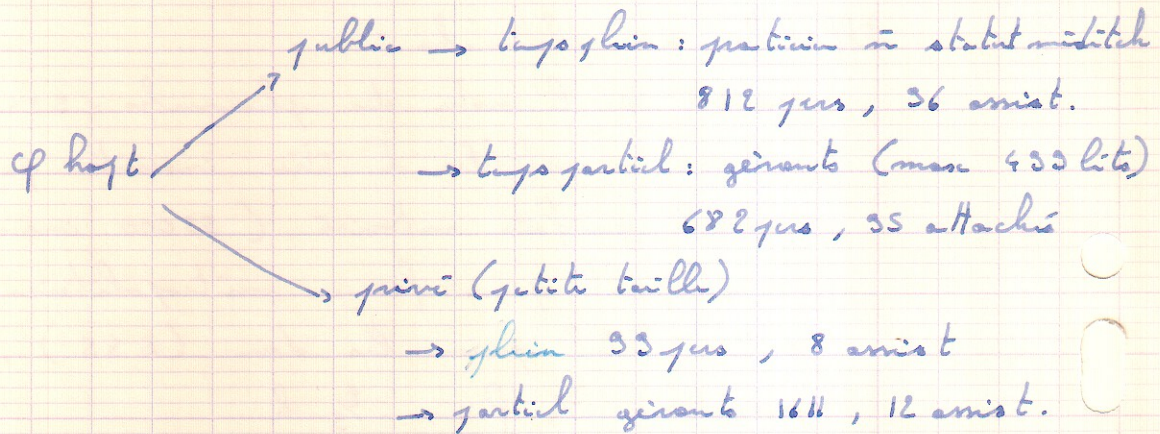 public → temps plein : praticien à statut médical
812 pers, 36 assist.
φ hopt
→ temps partiel : gérants (max 499 lits)
682 pers, 35 attachés
privé (petite taille)
→ plein 33 pers, 8 assist
→ partiel gérants 1611, 12 assist.